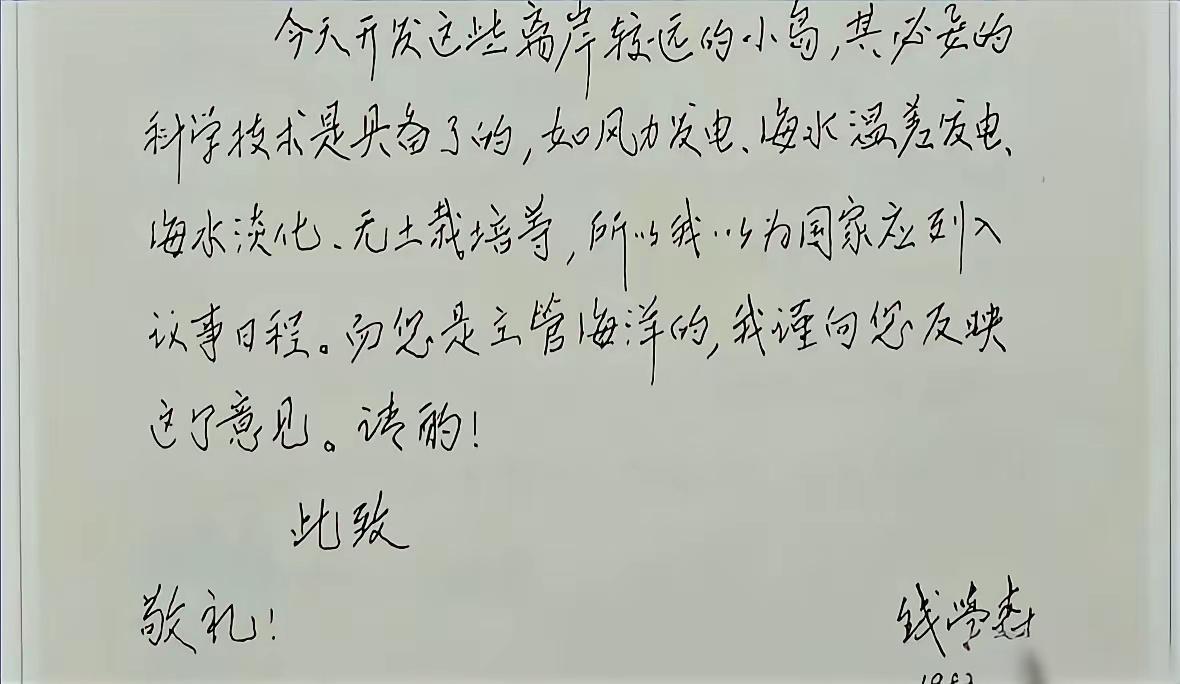 今天开发这些离岸较远的小岛,其必要的
科学技术是具备了的,如风力发电、海水温差发电、
海水淡化、无土栽培等,所以我以为国家应列入
议事日程。而您是主管海洋的,我谨向您反映
这个意见。请酌!
此致
敬礼!
钱学森